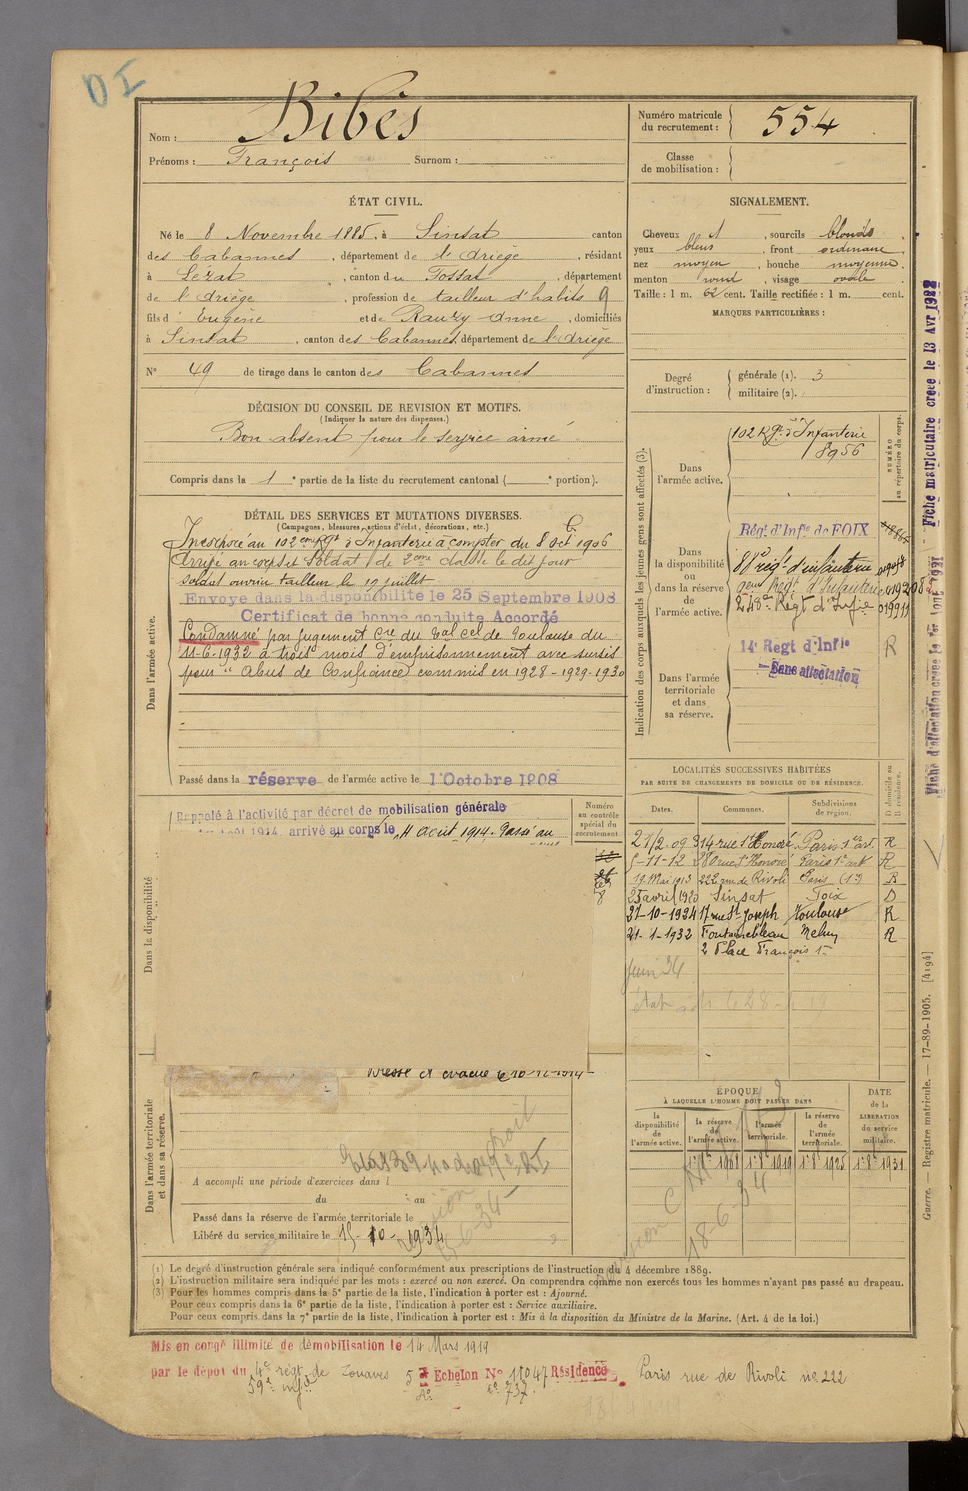 D I
Nom : Bibès
Prénoms : François Surnom :
Numéro matricule
du recrutement : 554
Classe
de mobilisation :
ÉTAT CIVIL.
Né le 8 Novembre 1885, à Sinsat canton
des Cabannes, département de l'Ariège, résidant
à Lezat, canton du Fossat, département
de l'Ariège, profession de tailleur d'habits 9
fils d'Eugène et de Rauzy Anne, domiciliés
à Sinsat, canton des Cabannes, département de l'Ariège
N° 49 de tirage dans le canton des Cabannes
SIGNALEMENT.
Cheveux et, sourcils blonds,
yeux bleus, front ordinaire
nez moyen, bouche moyenne,
menton rond, visage ovale
Taille : 1 m. 62 cent. Taille rectifiée : 1 m. cent.
MARQUES PARTICULIÈRES :
Degré
d'instruction :
générale (1). 3
militaire (2).
DÉCISION DU CONSEIL DE REVISION ET MOTIFS.
(Indiquer la nature des dispenses.)
Bon absent pour le service armé
Compris dans la 1e partie de la liste du recrutement cantonal ( e portion).
DÉTAIL DES SERVICES ET MUTATIONS DIVERSES.
(Campagnes, blessures, actions d'éclat, décorations, etc.)
Dans l'armée active.
Incorporé au 102eme Rgt d'Infanterie à compter du 8 Oct 1906
Arrivé au corps et Soldat de 2eme classe le dit jour
soldat ouvrier tailleur le 19 juillet
Envoyé dans la disponibilité le 25 Septembre 1908
Certificat de bonne conduite Accordé
Condamné par jugement Cre du Tal cel de Toulouse du
11-6-1932 à trois mois d'emprisonnement avec sursis
pour "Abus de Confiance" commis en 1928-1929-1930
Passé dans la réserve de l'armée active le 1 Octobre 1908
Indication des corps auxquels les jeunes gens sont affectés (3).
NUMÉRO
au répertoire du corps.
Dans
l'armée active.
102 Rgt d'Infanterie
8956
Dans
la disponibilité
ou
dans la réserve
de
l'armée active.
Régt d'Infie de FOIX
88e régt d'infanterie
Régt d'Infanterie
248e Regt d'Infie 019911
Dans l'armée
territoriale
et dans
sa réserve.
14e Regt d'Infie R
Sans affectation
Fiche matriculaire créée le 13 Avr 1922
LOCALITÉS SUCCESSIVES HABITÉES
PAR SUITE DE CHANGEMENTS DE DOMICILE OU DE RÉSIDENCE.
Dates. Communes. Subdivisions de région. D domicile ou R résidence.
21/2-09 314 rue St Honoré Paris 1er art. R
5-11-12 280 rue St Honoré Paris 1er art R
19 Mai 1913 222 rue de Rivoli Paris (1er) R
25 avril 1920 Sinsat Foix D
27-10-1924 17 rue St Joseph Toulouse R
21-1-1932 Fontainebleau Melun R
2 Place François 1er
juin 34
Dans la disponibilité
Rappelé à l'activité par décret de mobilisation générale
arrivé au corps le 11 Août 1914. Passé au
Numéro
au contrôle
spécial du
recrutement
Blessé et évacué le 10-12-1914
Dans l'armée territoriale
et dans sa réserve.
A accompli une période d'exercices dans l
du au
Passé dans la réserve de l'armée territoriale le
Libéré du service militaire le 15-10-1934
ÉPOQUE
À LAQUELLE L'HOMME DOIT PASSER DANS
la disponibilité de l'armée active.
la réserve de l'armée active.
l'armée territoriale.
la réserve de l'armée territoriale.
DATE
de la
LIBÉRATION
du service
militaire.
1er 8e 1908 1er 8e 1919 1er 8e 1925 1er 8e 1931
18-6-34
Guerre. — Registre matricule. — 17-89-1905. [4194]
(1) Le degré d'instruction générale sera indiqué conformément aux prescriptions de l'instruction du 4 décembre 1889.
(2) L'instruction militaire sera indiquée par les mots : exercé ou non exercé. On comprendra comme non exercés tous les hommes n'ayant pas passé au drapeau.
(3) Pour les hommes compris dans la 5e partie de la liste, l'indication à porter est : Ajourné.
Pour ceux compris dans la 6e partie de la liste, l'indication à porter est : Service auxiliaire.
Pour ceux compris dans la 7e partie de la liste, l'indication à porter est : Mis à la disposition du Ministre de la Marine. (Art. 4 de la loi.)
Mis en congé illimité de démobilisation le 14 Mars 1919
par le dépot du 4e régt de Zouaves 5e Echelon N° 11047 Résidence Paris rue de Rivoli n° 222
59e infie n° 737